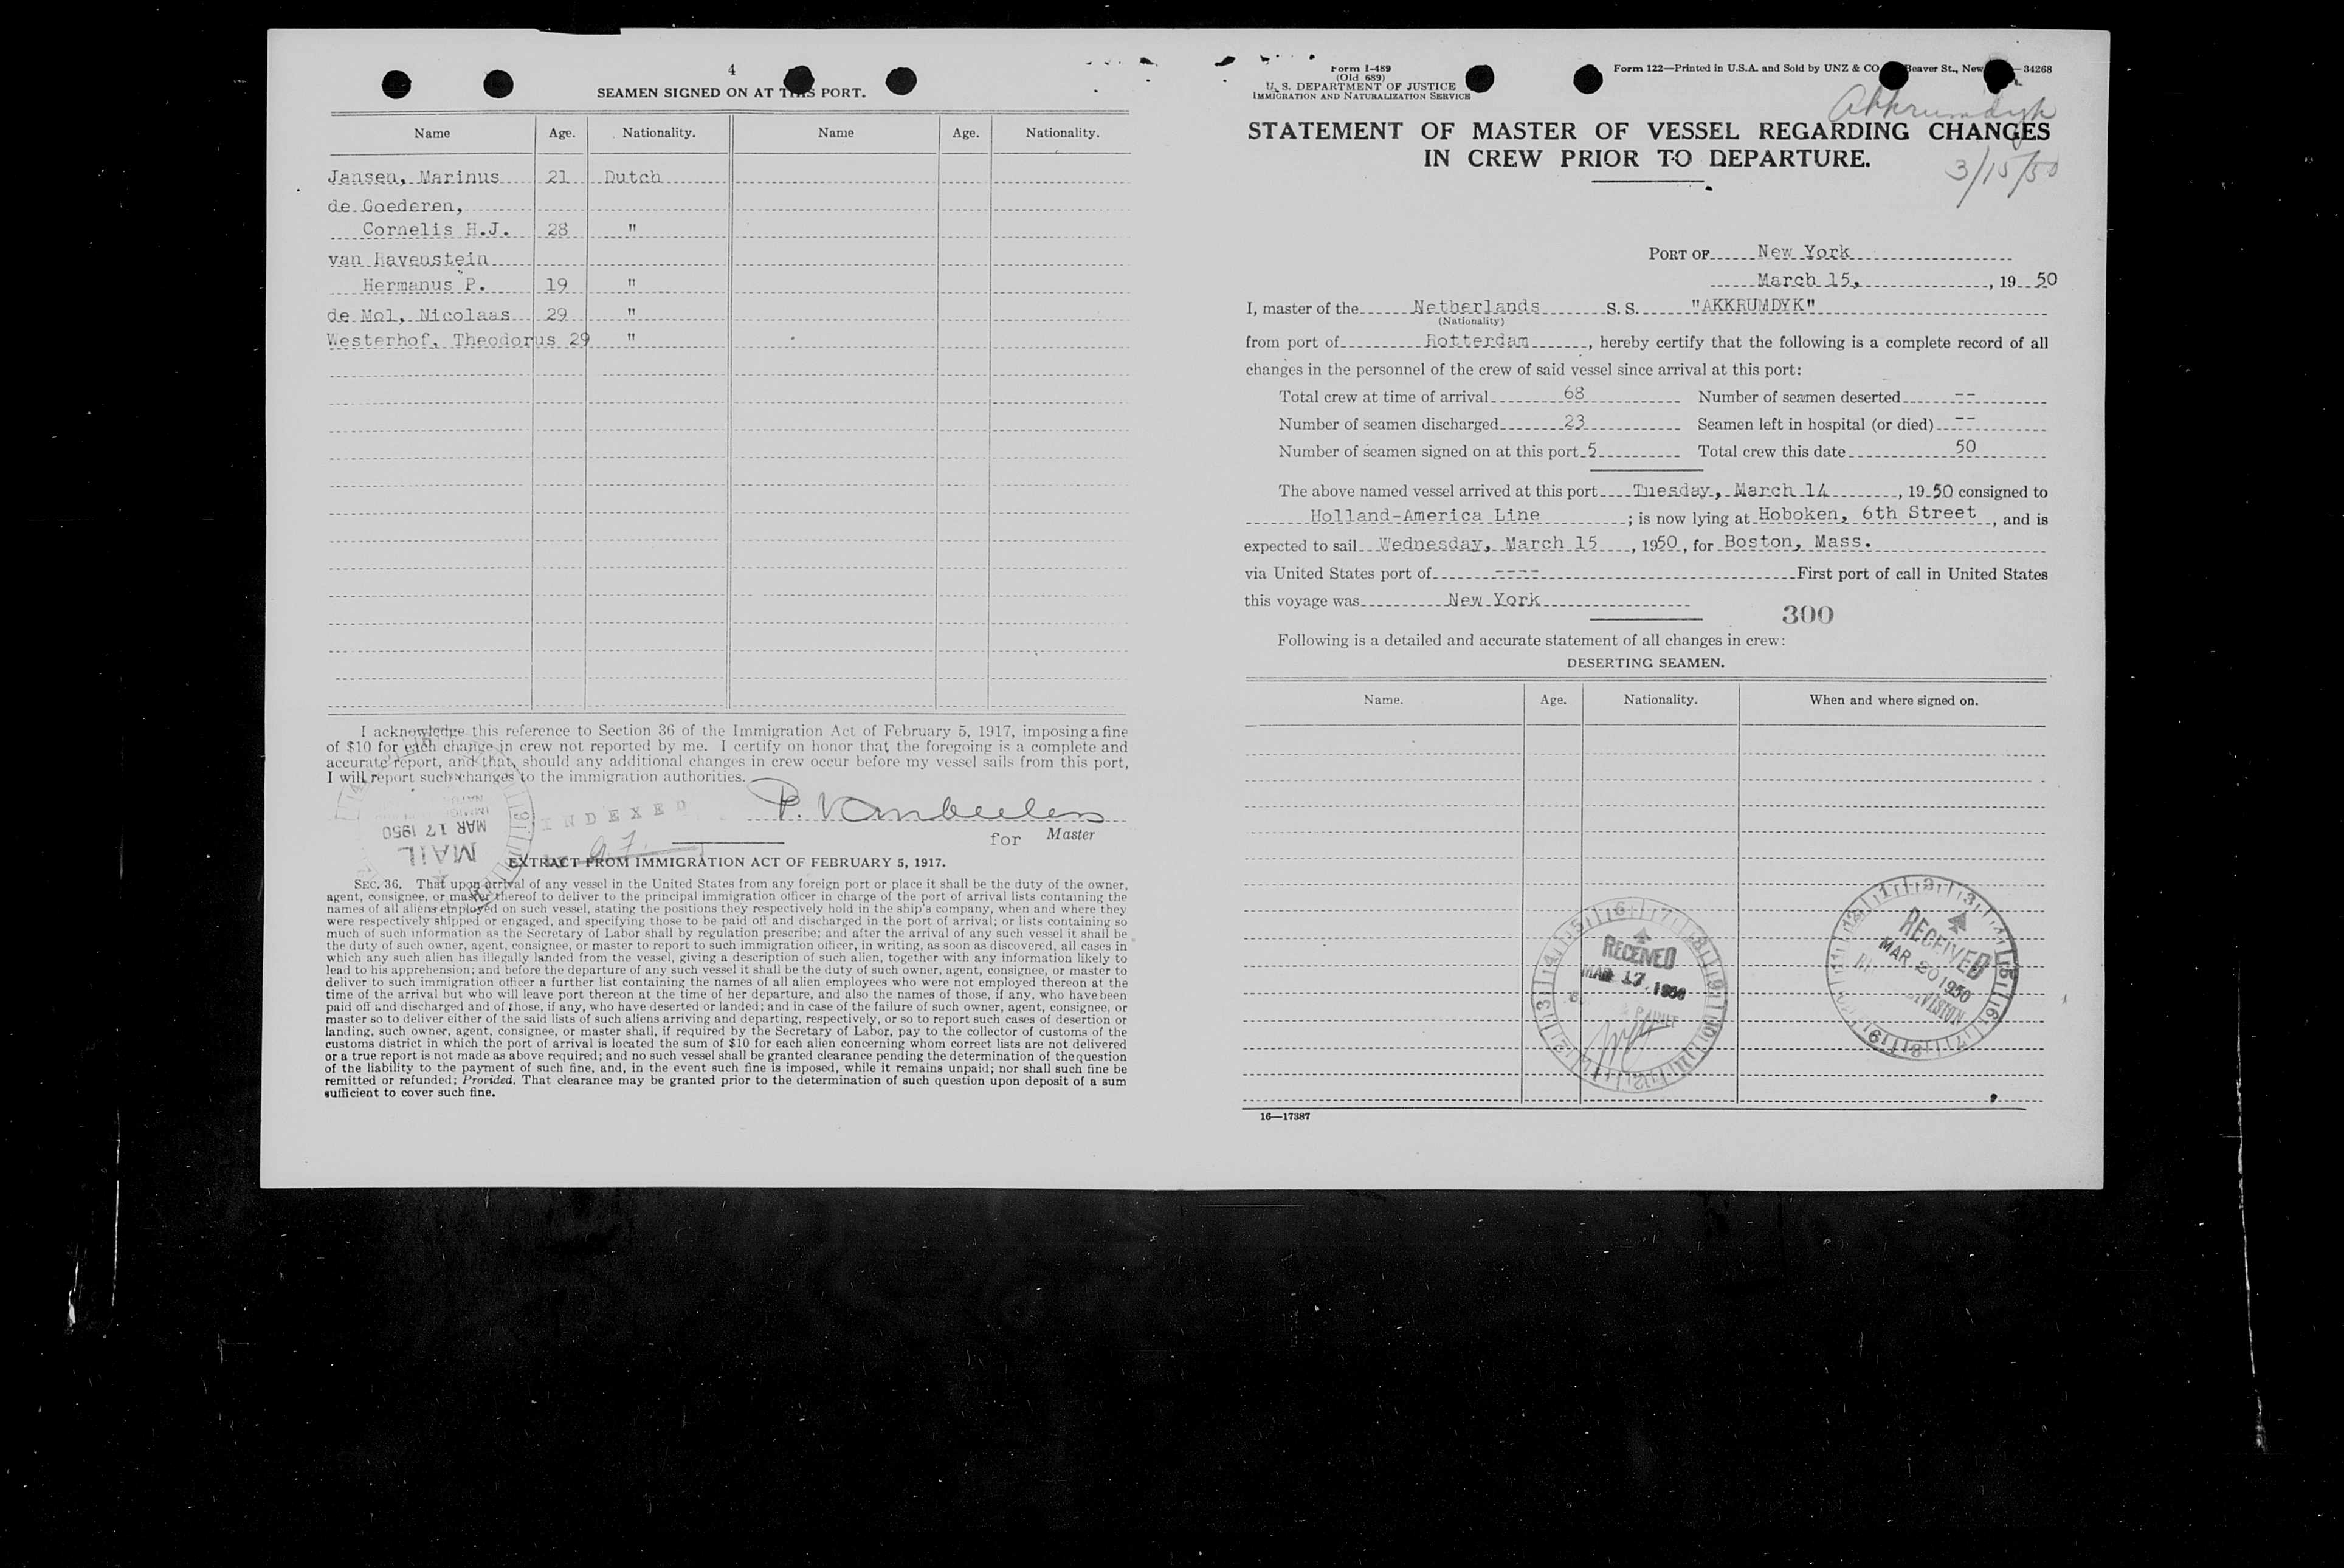 4
SEAMEN SIGNED ON AT THIS PORT.
Name Age. Nationality. Name Age. Nationality.
Jansen, Marinus 21 Dutch
de Goederen,
Cornelis H.J. 28 "
van Ravenstein
Hermanus P. 19 "
de Mol, Nicolaas 29 "
Westerhof, Theodorus 29 "
I acknowledge this reference to Section 36 of the Immigration Act of February 5, 1917, imposing a fine
of $10 for each change in crew not reported by me. I certify on honor that the foregoing is a complete and
accurate report, and that, should any additional changes in crew occur before my vessel sails from this port,
I will report such changes to the immigration authorities.
MAR 17 1950
MAIL
INDEXED
for Master
EXTRACT FROM IMMIGRATION ACT OF FEBRUARY 5, 1917.
SEC. 36. That upon arrival of any vessel in the United States from any foreign port or place it shall be the duty of the owner,
agent, consignee, or master thereof to deliver to the principal immigration officer in charge of the port of arrival lists containing the
names of all aliens employed on such vessel, stating the positions they respectively hold in the ship's company, when and where they
were respectively shipped or engaged, and specifying those to be paid off and discharged in the port of arrival; or lists containing so
much of such information as the Secretary of Labor shall by regulation prescribe; and after the arrival of any such vessel it shall be
the duty of such owner, agent, consignee, or master to report to such immigration officer, in writing, as soon as discovered, all cases in
which any such alien has illegally landed from the vessel, giving a description of such alien, together with any information likely to
lead to his apprehension; and before the departure of any such vessel it shall be the duty of such owner, agent, consignee, or master to
deliver to such immigration officer a further list containing the names of all alien employees who were not employed thereon at the
time of the arrival but who will leave port thereon at the time of her departure, and also the names of those, if any, who have been
paid off and discharged and of those, if any, who have deserted or landed; and in case of the failure of such owner, agent, consignee, or
master so to deliver either of the said lists of such aliens arriving and departing, respectively, or so to report such cases of desertion or
landing, such owner, agent, consignee, or master shall, if required by the Secretary of Labor, pay to the collector of customs of the
customs district in which the port of arrival is located the sum of $10 for each alien concerning whom correct lists are not delivered
or a true report is not made as above required; and no such vessel shall be granted clearance pending the determination of the question
of the liability to the payment of such fine, and, in the event such fine is imposed, while it remains unpaid; nor shall such fine be
remitted or refunded; Provided, That clearance may be granted prior to the determination of such question upon deposit of a sum
sufficient to cover such fine.
Form I-489
(Old 689)
U. S. DEPARTMENT OF JUSTICE
IMMIGRATION AND NATURALIZATION SERVICE
Form 122—Printed in U.S.A. and Sold by UNZ & CO Beaver St., New —34268
Akkrumdyk
STATEMENT OF MASTER OF VESSEL REGARDING CHANGES
IN CREW PRIOR TO DEPARTURE.
3/15/50
PORT OF New York
March 15, , 19 50
I, master of the Netherlands S. S. "AKKRUMDYK"
(Nationality)
from port of Rotterdam , hereby certify that the following is a complete record of all
changes in the personnel of the crew of said vessel since arrival at this port:
Total crew at time of arrival 68 Number of seamen deserted --
Number of seamen discharged 23 Seamen left in hospital (or died) --
Number of seamen signed on at this port 5 Total crew this date 50
The above named vessel arrived at this port Tuesday, March 14 , 19 50 consigned to
Holland-America Line ; is now lying at Hoboken, 6th Street , and is
expected to sail Wednesday, March 15 , 1950 , for Boston, Mass.
via United States port of ---- First port of call in United States
this voyage was New York
300
Following is a detailed and accurate statement of all changes in crew:
DESERTING SEAMEN.
Name. Age. Nationality. When and where signed on.
RECEIVED
MAR 17 1950
RECEIVED
MAR 20 1950
DIVISION
16—17387